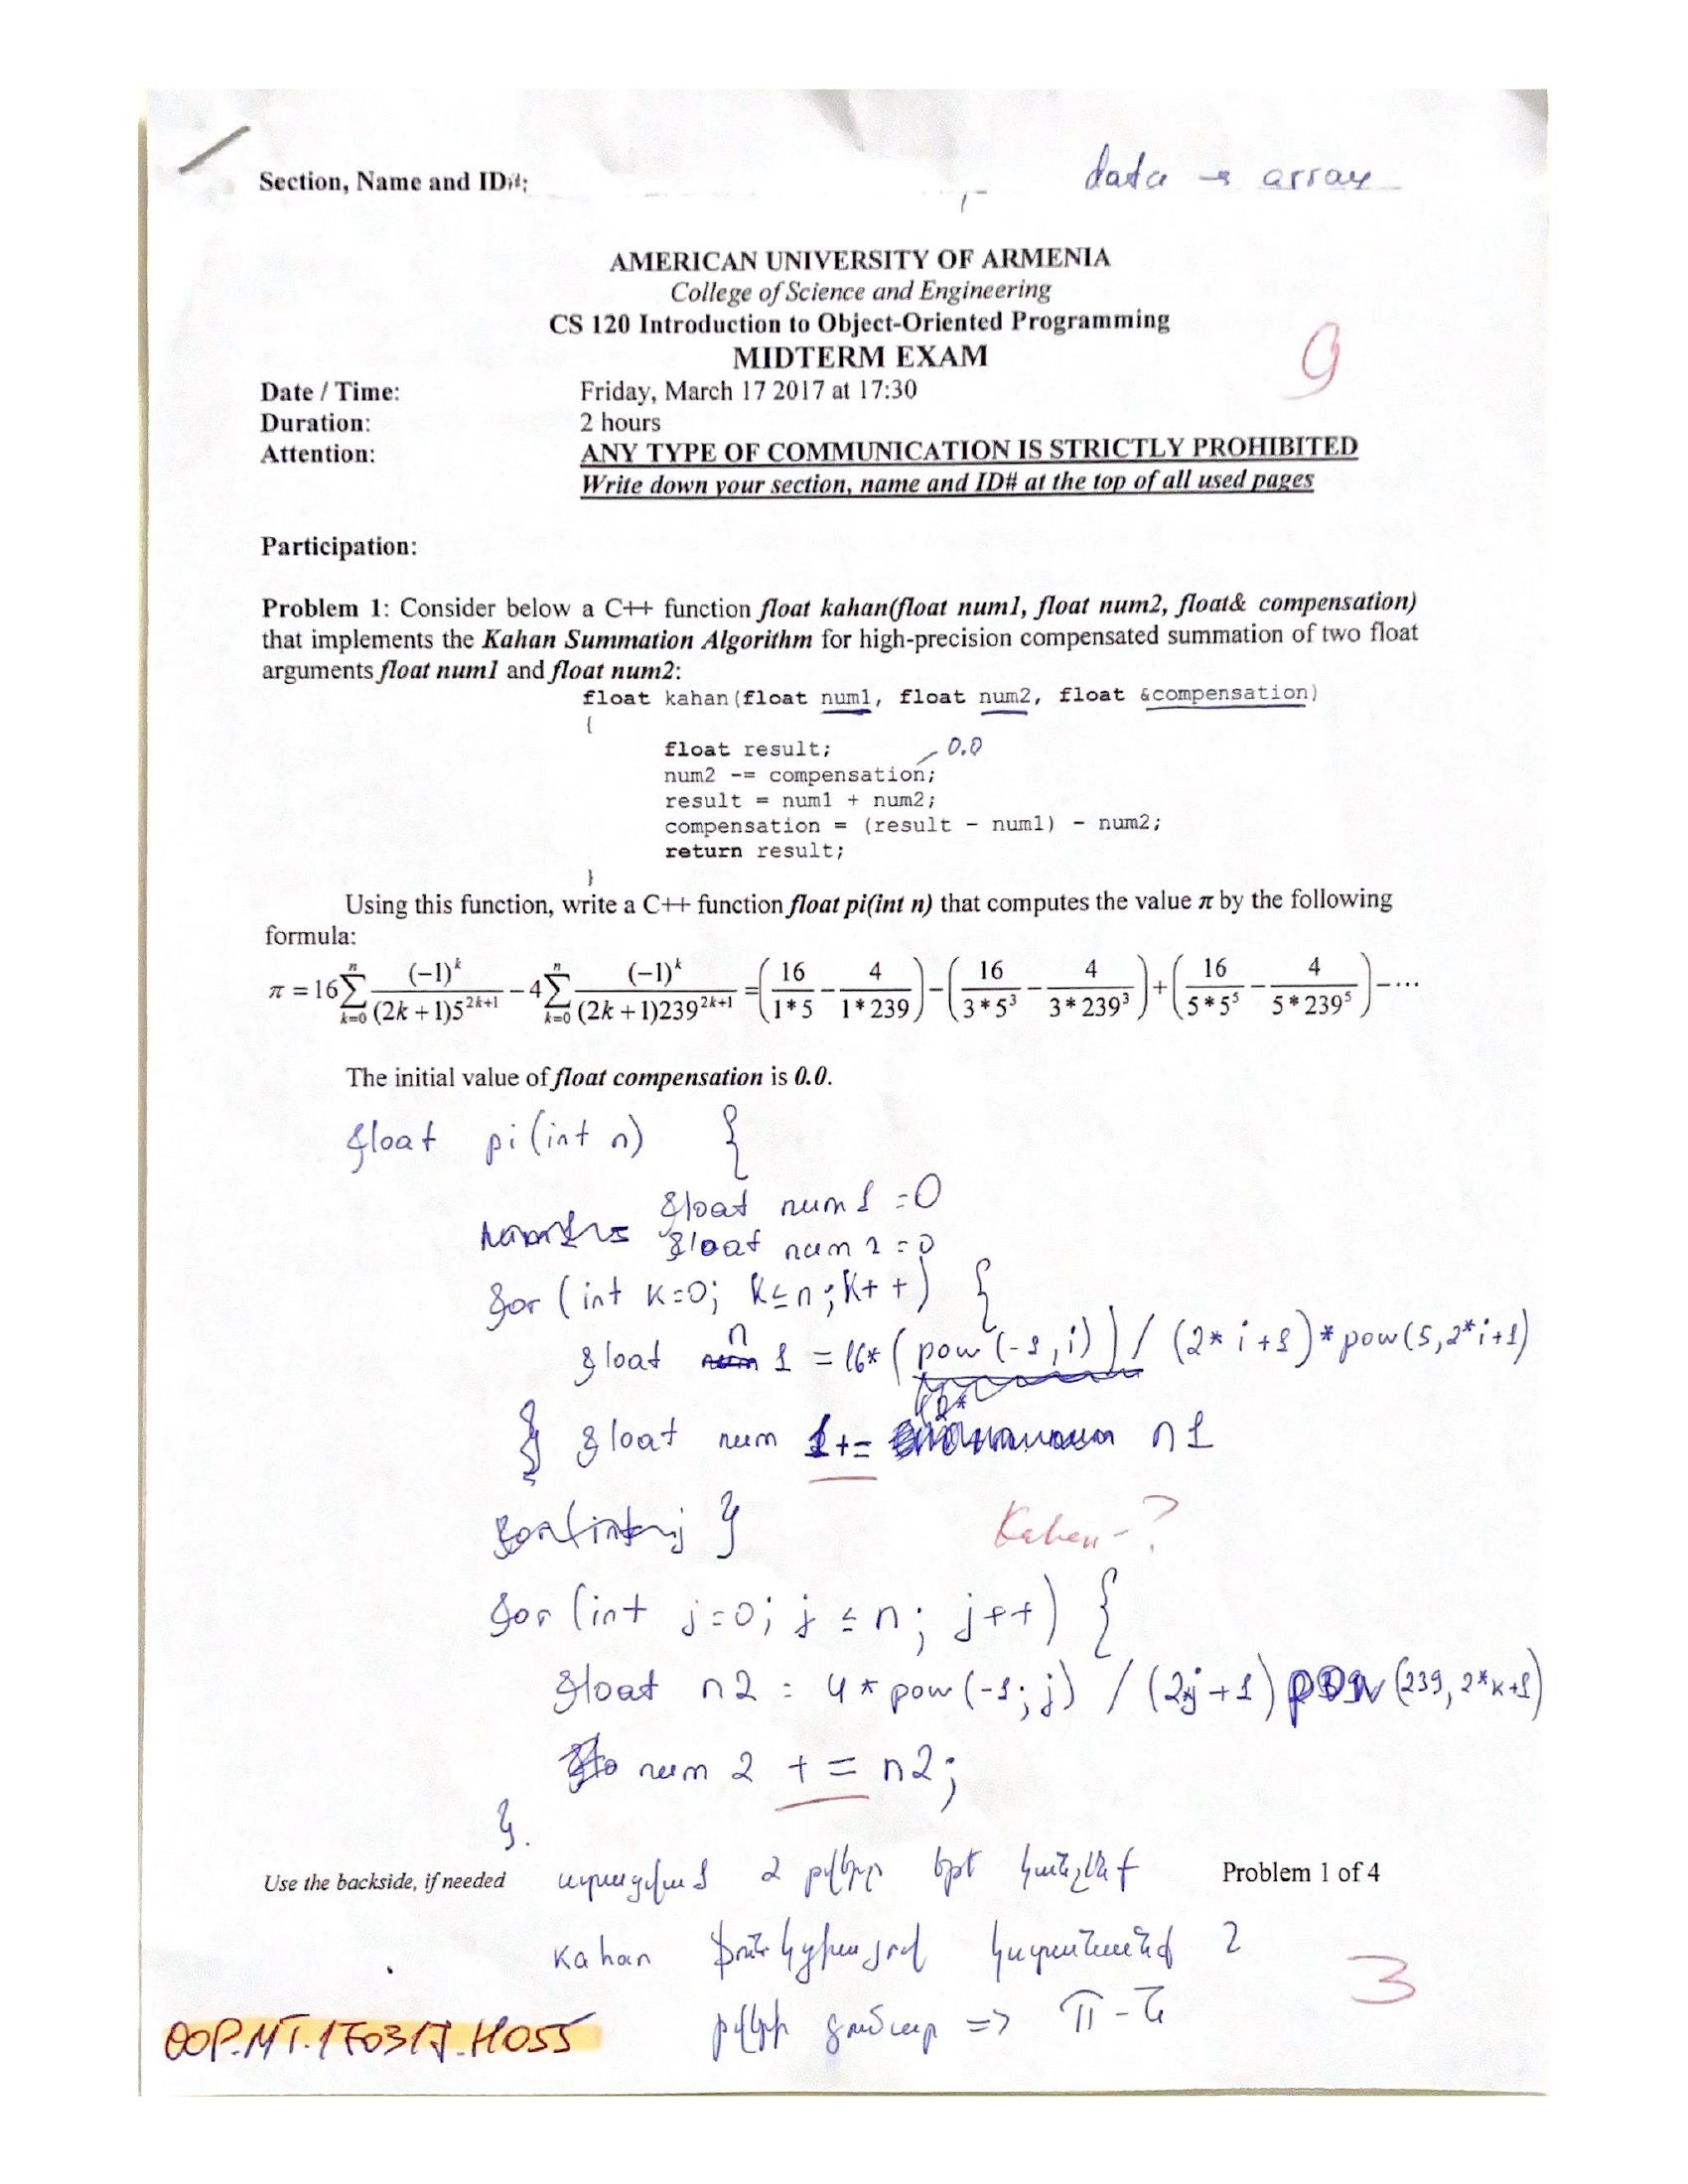 Section, Name and ID#:
data → array
AMERICAN UNIVERSITY OF ARMENIA
College of Science and Engineering
CS 120 Introduction to Object-Oriented Programming
MIDTERM EXAM
9
Date / Time: Friday, March 17 2017 at 17:30
Duration: 2 hours
Attention: ANY TYPE OF COMMUNICATION IS STRICTLY PROHIBITED
Write down your section, name and ID# at the top of all used pages
Participation:
Problem 1: Consider below a C++ function float kahan(float num1, float num2, float& compensation)
that implements the Kahan Summation Algorithm for high-precision compensated summation of two float
arguments float num1 and float num2:
float kahan(float num1, float num2, float &compensation)
{
float result;
0.0
num2 -= compensation;
result = num1 + num2;
compensation = (result - num1) - num2;
return result;
}
Using this function, write a C++ function float pi(int n) that computes the value π by the following
formula:
π = 16 ∑_{k=0}^{n} (-1)^k / ((2k+1)5^{2k+1}) - 4 ∑_{k=0}^{n} (-1)^k / ((2k+1)239^{2k+1}) = (16/(1*5) - 4/(1*239)) - (16/(3*5^3) - 4/(3*239^3)) + (16/(5*5^5) - 4/(5*239^5)) - ...
The initial value of float compensation is 0.0.
float pi(int n) {
float num1 = 0
float num2 = 0
for (int k=0; k≤n; k++) {
float n1 = 16* (pow(-1,i)) / (2*i+1)*pow(5,2*i+1)
} float num 1+= n1
}
Kahan-?
for (int j=0; j≤n; j++) {
float n2 = 4*pow(-1;j) / (2*j+1) pow(239, 2*k+1)
num2 += n2;
}.
Use the backside, if needed
ստացված 2 թվերը երբ կանչենք
Problem 1 of 4
kahan ֆունկցիայով կստանանք 2
թվերի գումար => π-ն
3
OOP.MT.170317.H055